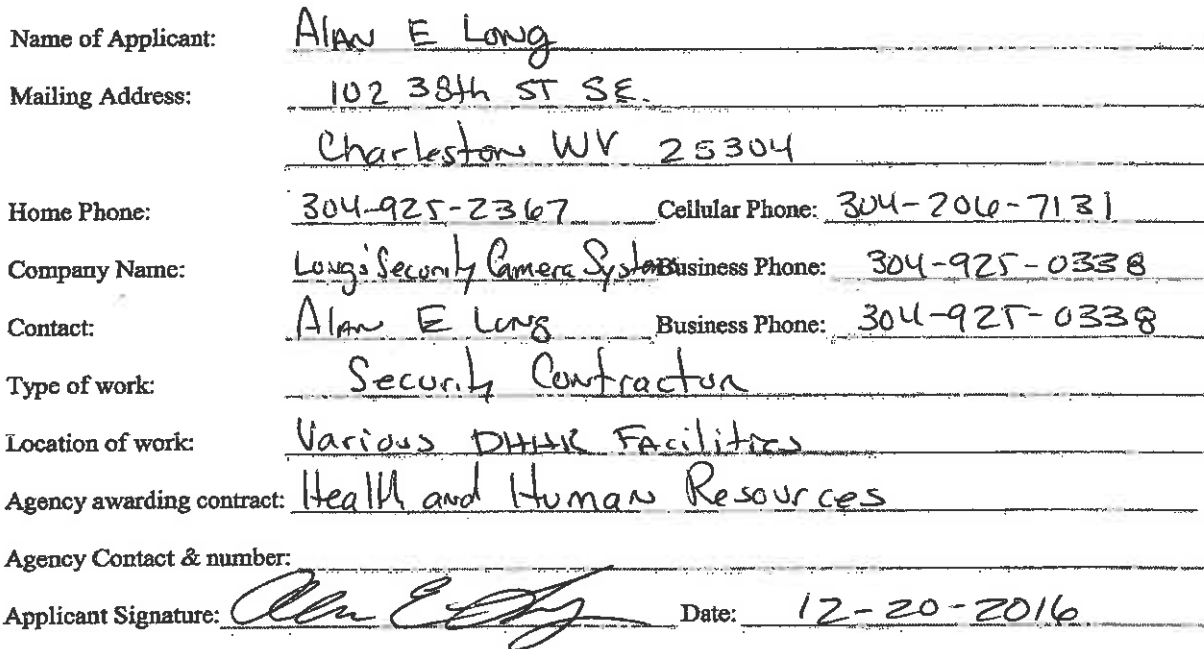 Name of Applicant: Alan E Long
Mailing Address: 102 38th ST SE.
Charleston WV 25304
Home Phone: 304-925-2367 Cellular Phone: 304-206-7131
Company Name: Long's Security Camera Systems Business Phone: 304-925-0338
Contact: Alan E Long Business Phone: 304-925-0338
Type of work: Security Contractor
Location of work: Various DHHR Facilities
Agency awarding contract: Health and Human Resources
Agency Contact & number:
Applicant Signature: Alan E Long Date: 12-20-2016